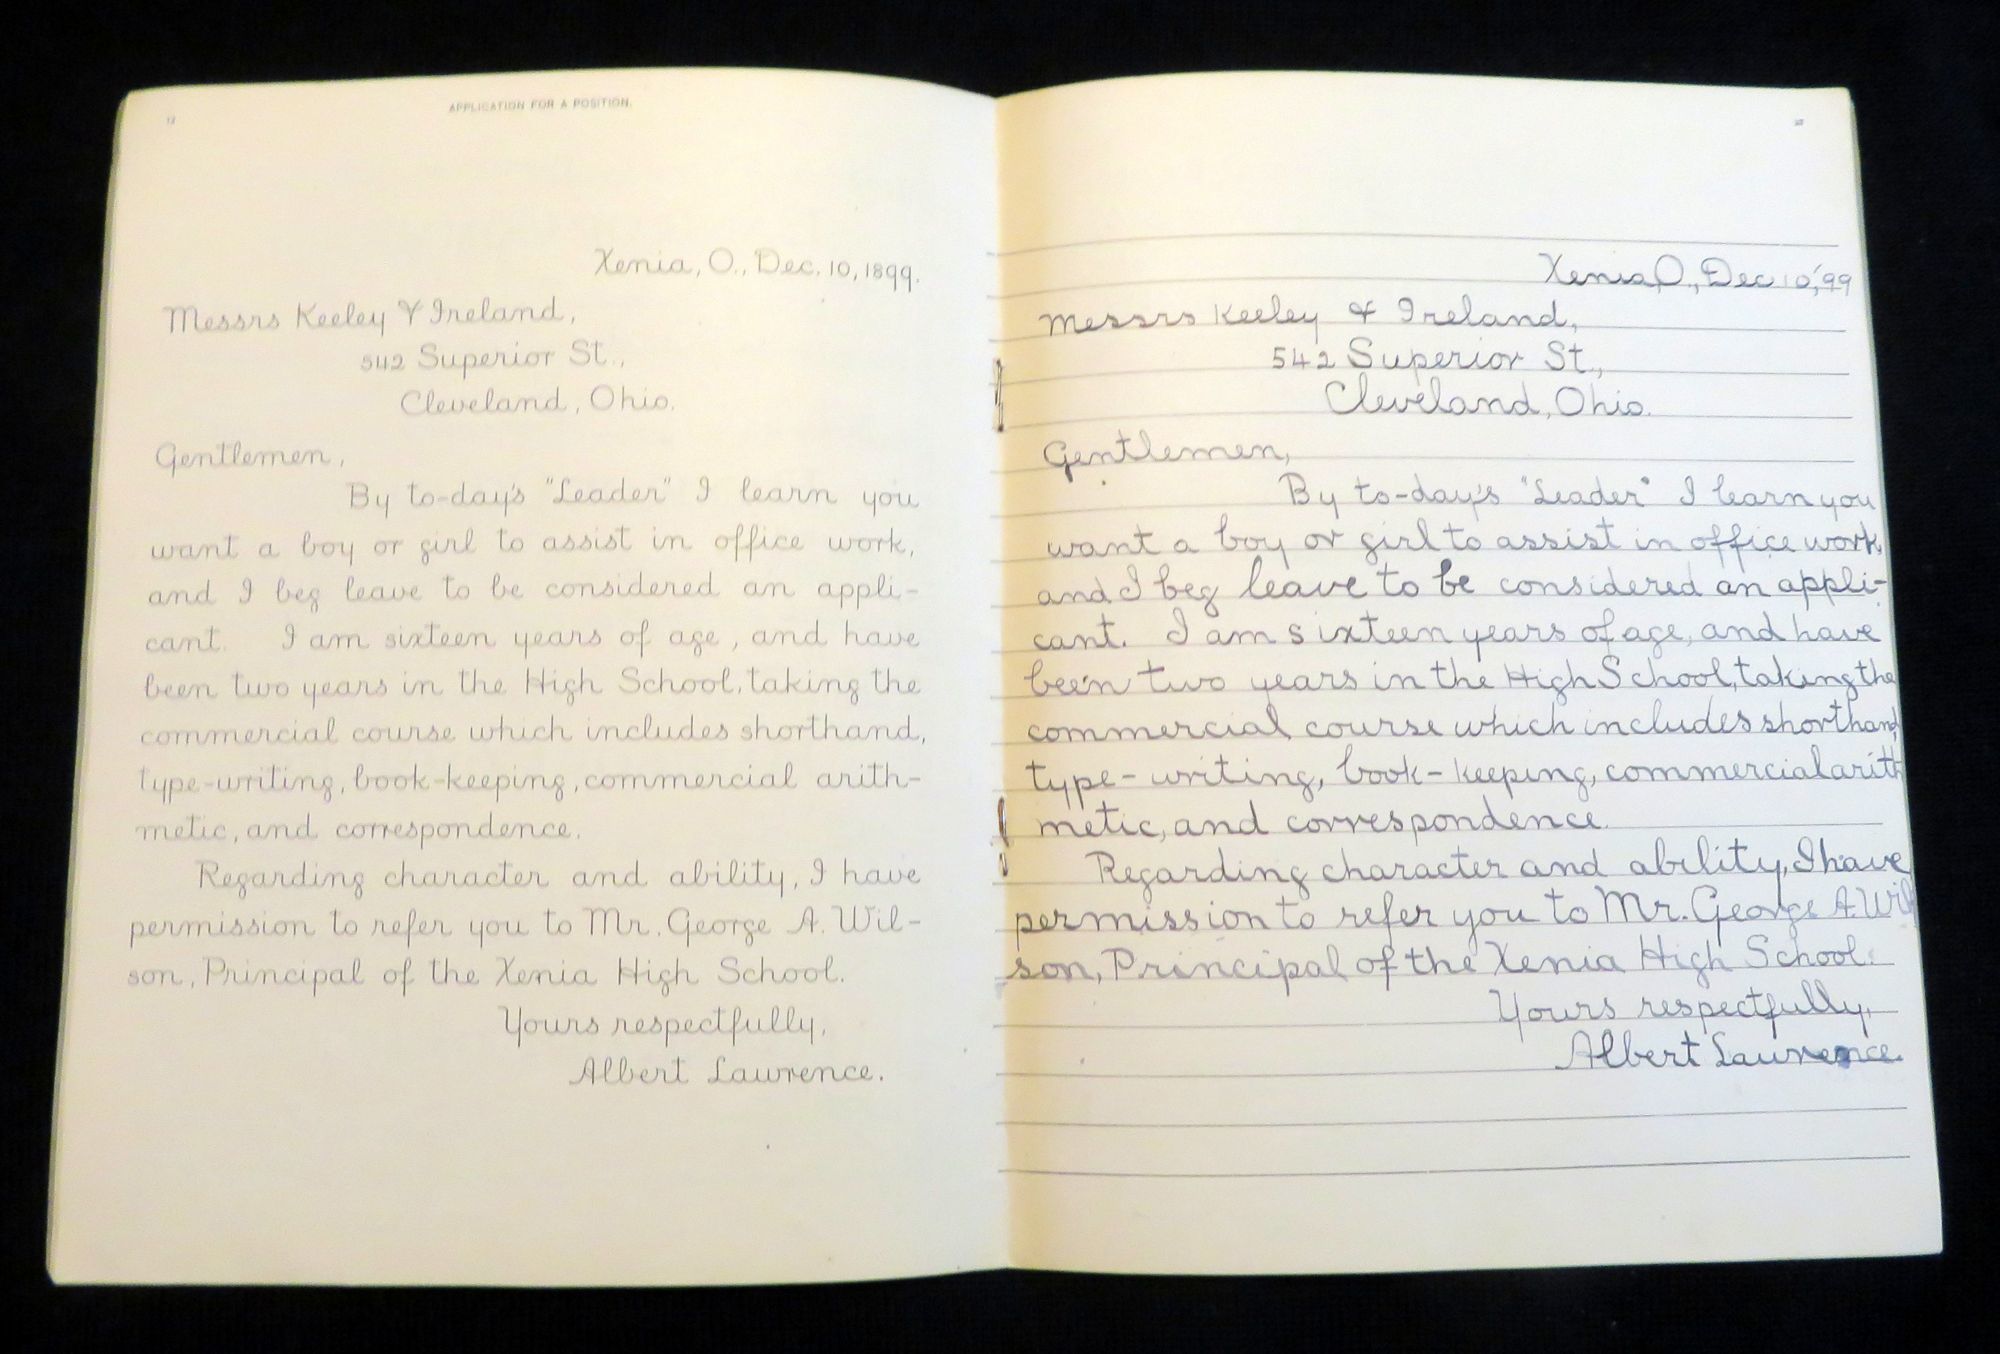 12
APPLICATION FOR A POSITION.
Xenia, O., Dec. 10, 1899.
Messrs Keeley & Ireland,
542 Superior St.,
Cleveland, Ohio.
Gentlemen,
By to-day's "Leader" I learn you
want a boy or girl to assist in office work,
and I beg leave to be considered an appli-
cant. I am sixteen years of age, and have
been two years in the High School, taking the
commercial course which includes shorthand,
type-writing, book-keeping, commercial arith-
metic, and correspondence.
Regarding character and ability, I have
permission to refer you to Mr. George A. Wil-
son, Principal of the Xenia High School.
Yours respectfully,
Albert Lawrence.
Xenia, O., Dec 10, '99
Messrs Keeley & Ireland,
542 Superior St.,
Cleveland, Ohio.
Gentlemen,
By to-day's "Leader" I learn you
want a boy or girl to assist in office work,
and I beg leave to be considered an appli-
cant. I am sixteen years of age, and have
been two years in the High School, taking the
commercial course which includes shorthand,
type-writing, book-keeping, commercial arith
metic, and correspondence.
Regarding character and ability, I have
permission to refer you to Mr. George A. Wil
son, Principal of the Xenia High School.
Yours respectfully,
Albert Lawrence.